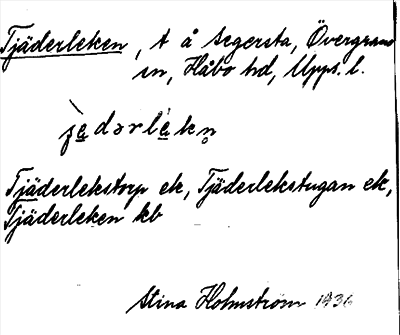 Tjäderleken, t å Segersta, Övergrans
sn, Håbo hd, Upps. l.
jèdərlèkn̥
Tjäderlekstorp ek, Tjäderlekstugan ek,
Tjäderleken kb
Stina Holmström 1936